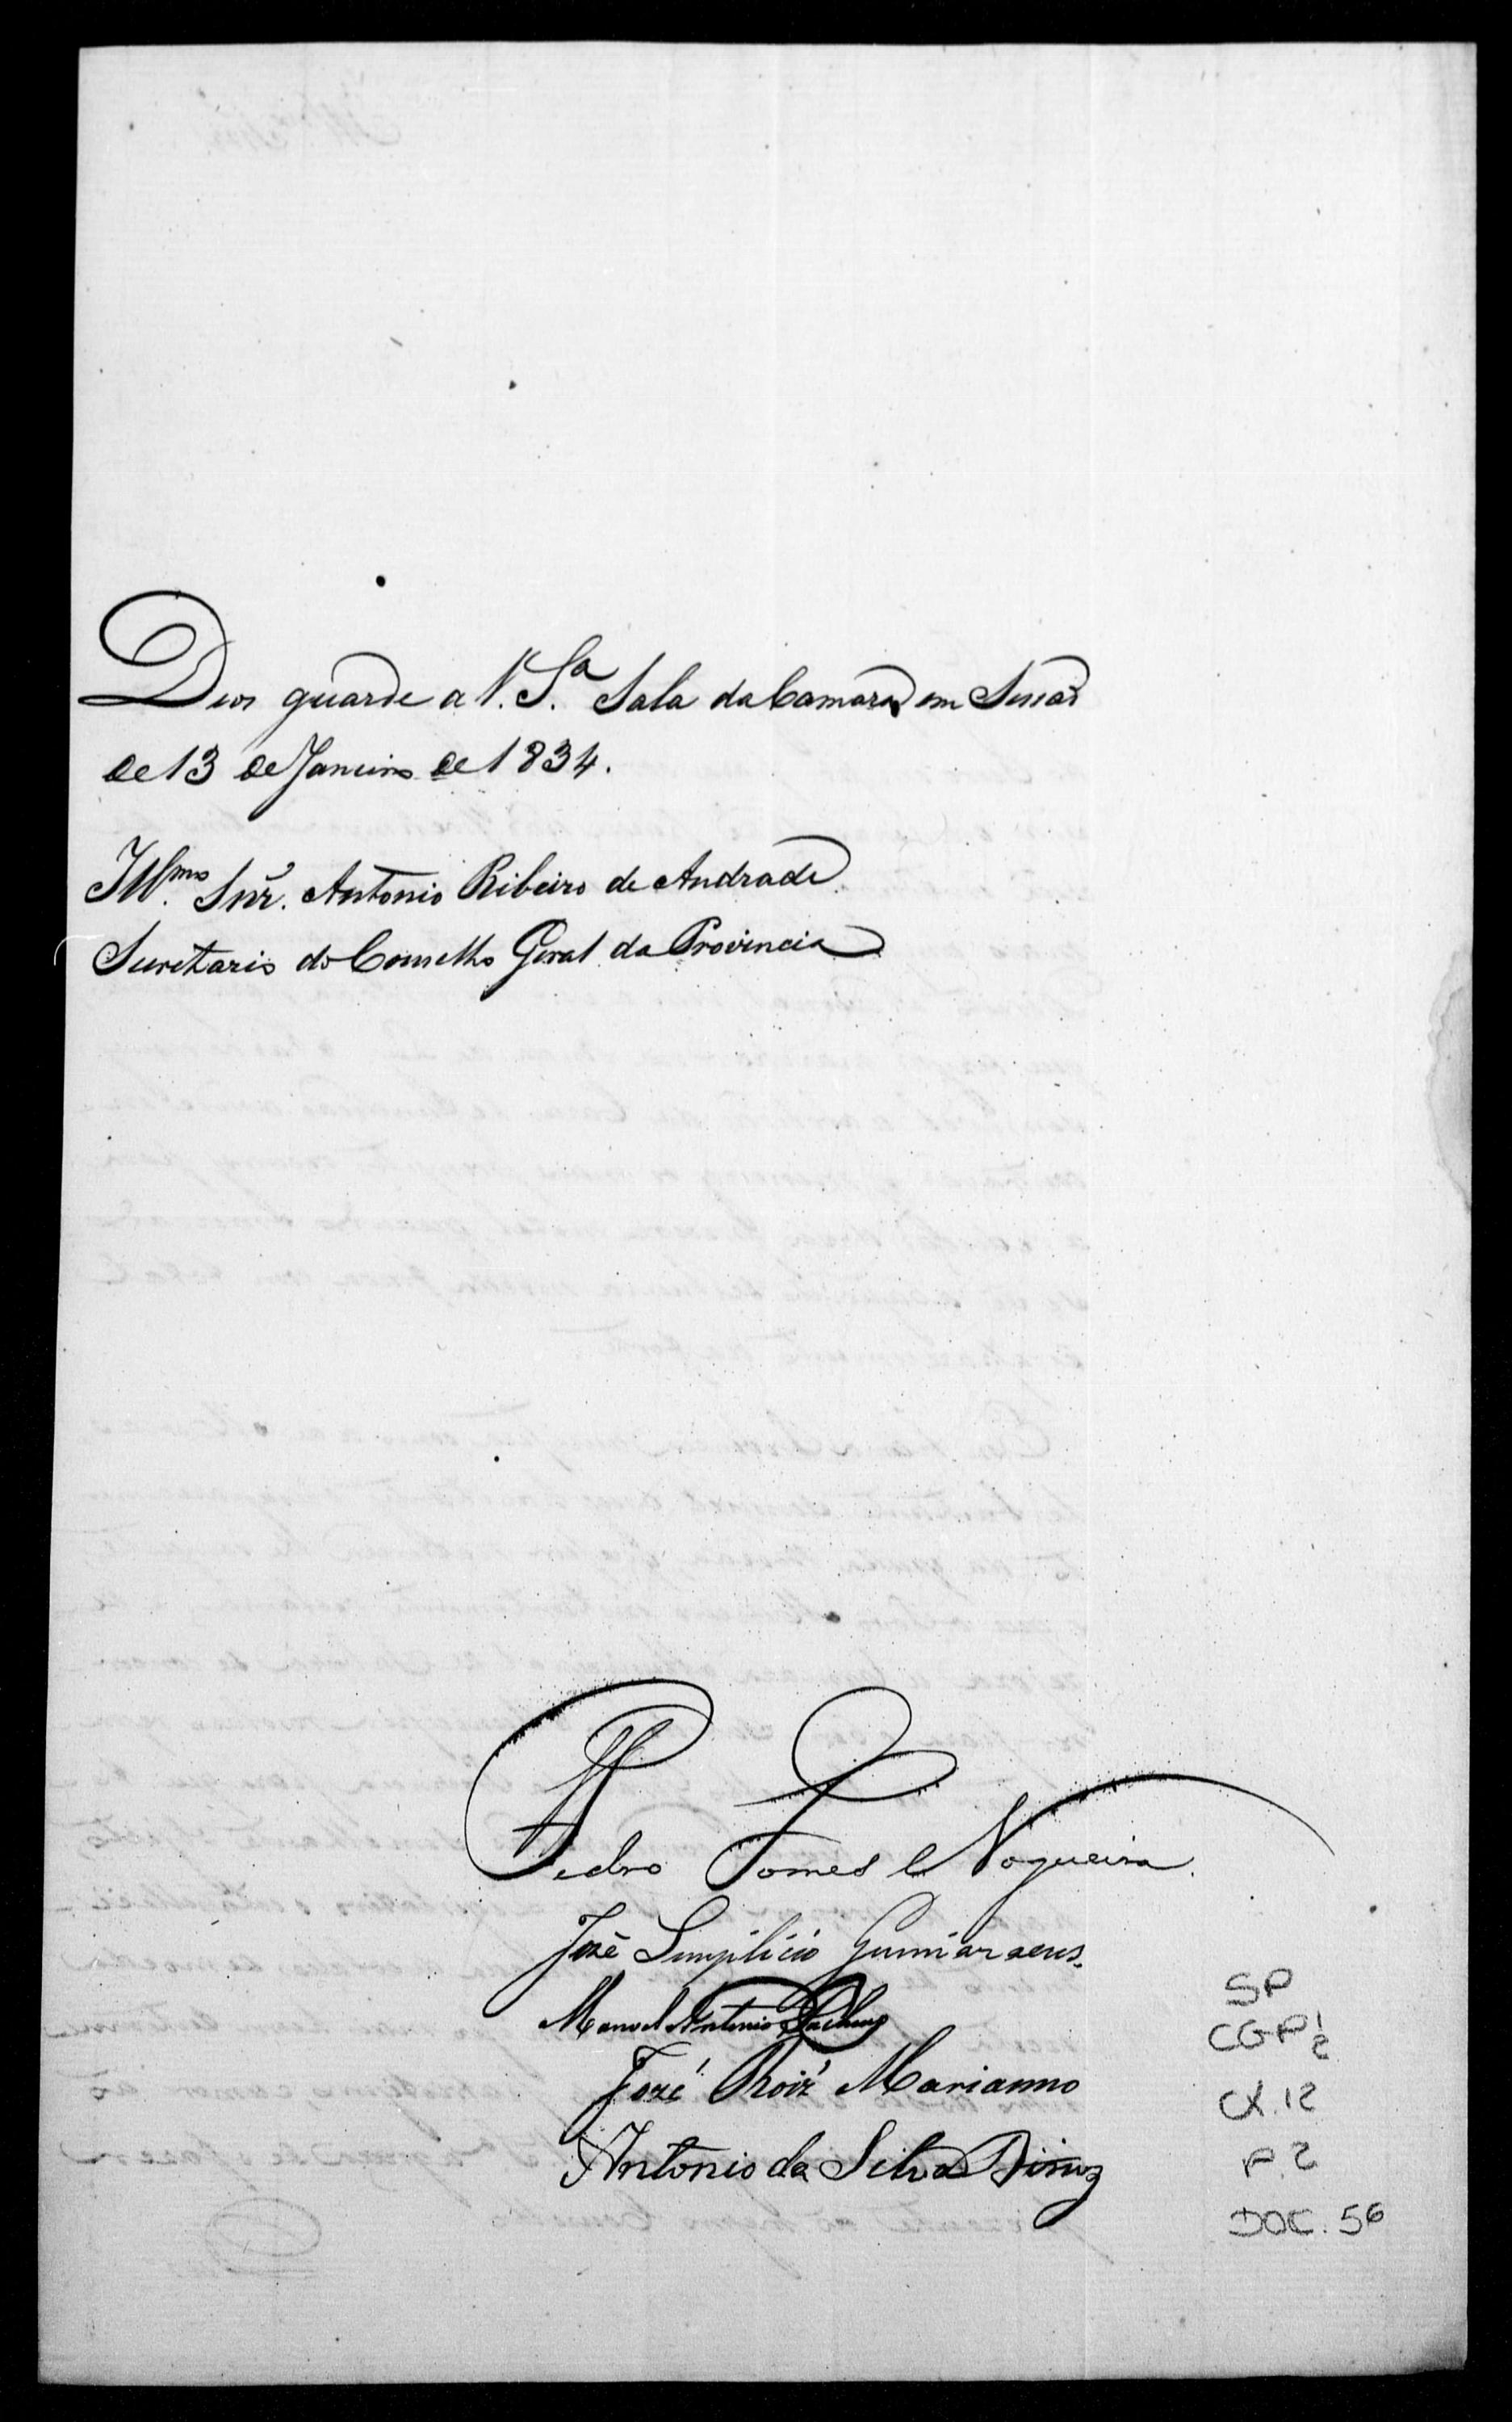 Deos guarde a V. S.ª Sala da Camara em Sessão
de 13 de Janeiro de 1834.
Ill.mo Snr. Antonio Ribeiro de Andrade
Secretario do Conselho Geral da Provincia
Pedro Gomes Nogueira
José Simplicio Guimaraens.
Manoel Antonio Pacheco
José Roiz Marianno
Antonio da Silva Diniz
SP
CGP 1/2
CX. 12
P. 2
DOC. 56